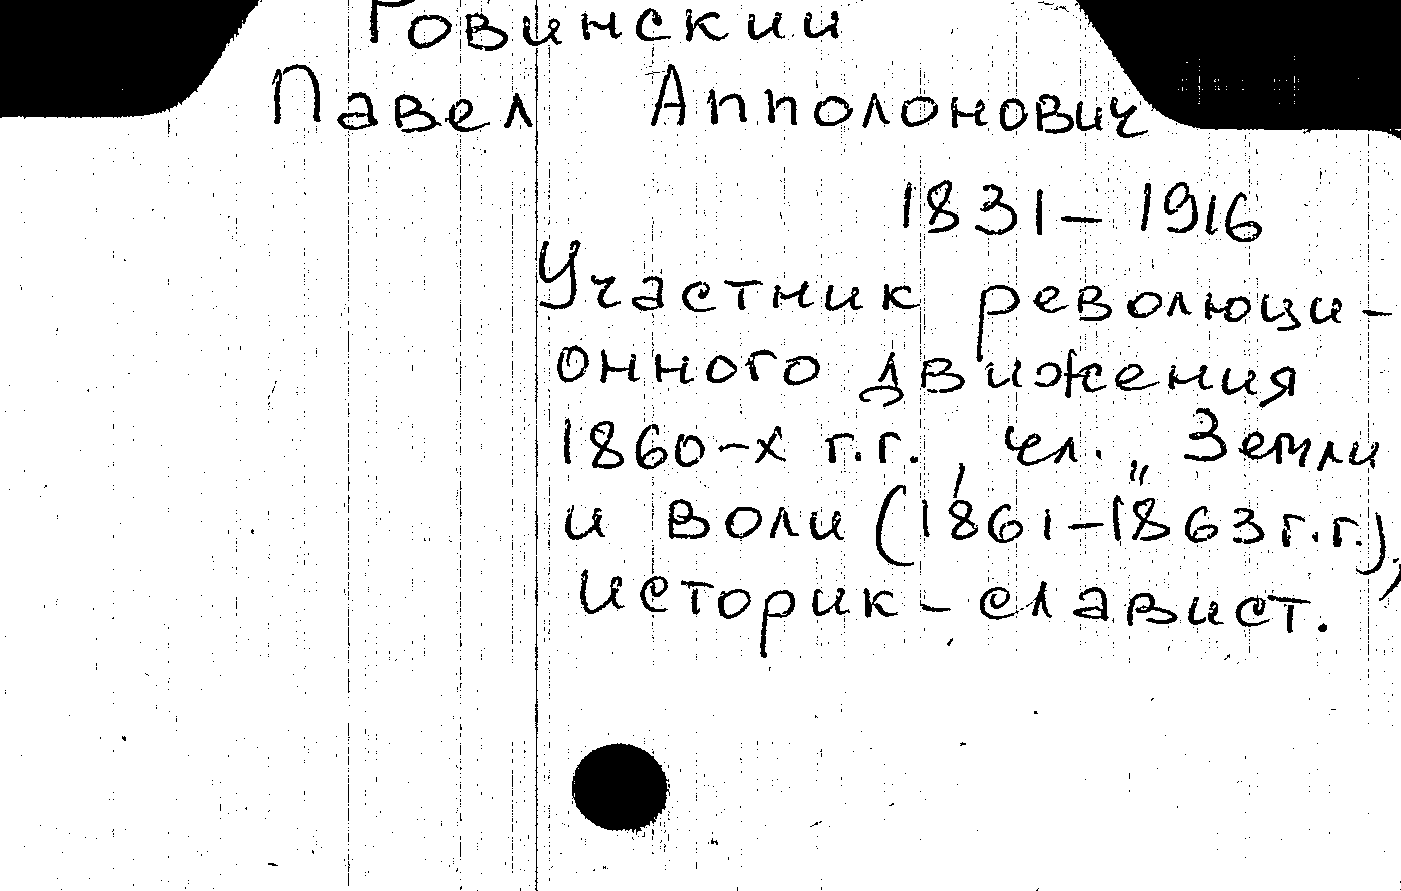 Ровинский
Павел Апполонович
1831 – 1916
Участник революци-
онного движения
1860-х г.г., чл. „Земли
и воли (1861-1863 г.г.),
историк-славист.